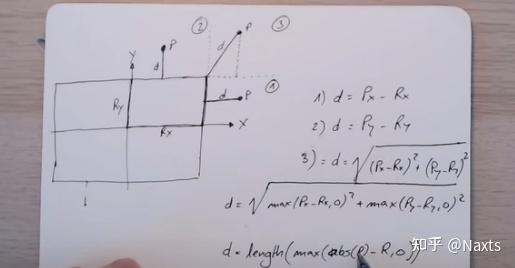 ② ③
P P
d d
Y
①
d P
Ry
Rx X
1) d = Px - Rx
2) d = Py - Ry
3) = d = √(Px-Rx)² + (Py-Ry)²
d = √max(Px-Rx,0)² + max(Py-Ry,0)²
d = length(max(abs(P)-R,0))
知乎 @Naxts